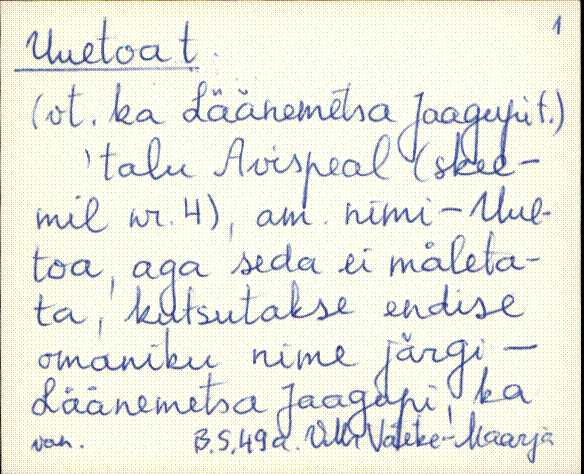 1
Uuetoa t.
(vt. ka Läänemetsa Jaagupi t.)
'talu Avispeal (skee-
mil nr. 4), am. nimi - Uue-
toa, aga seda ei mäleta-
ta, kutsutakse endise
omaniku nime järgi -
Läänemetsa Jaagupi, ka
van. B.S, 49 a. VMr Väike-Maarja